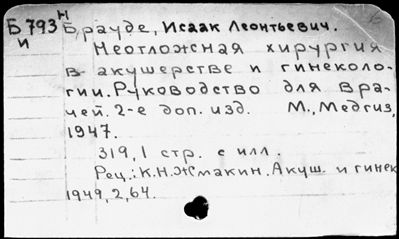 Б 793 Н Брауде, Исаак Леонтьевич.
и
Неотложная хирургия
в акушерстве и гинеколо-
гии. Руководство для вра-
чей. 2-е доп. изд. М., Медгиз,
1947.
319,1 стр. с илл.
Рец.: К.Н. Жмакин. Акуш. и гинек
1949, 2, 64.